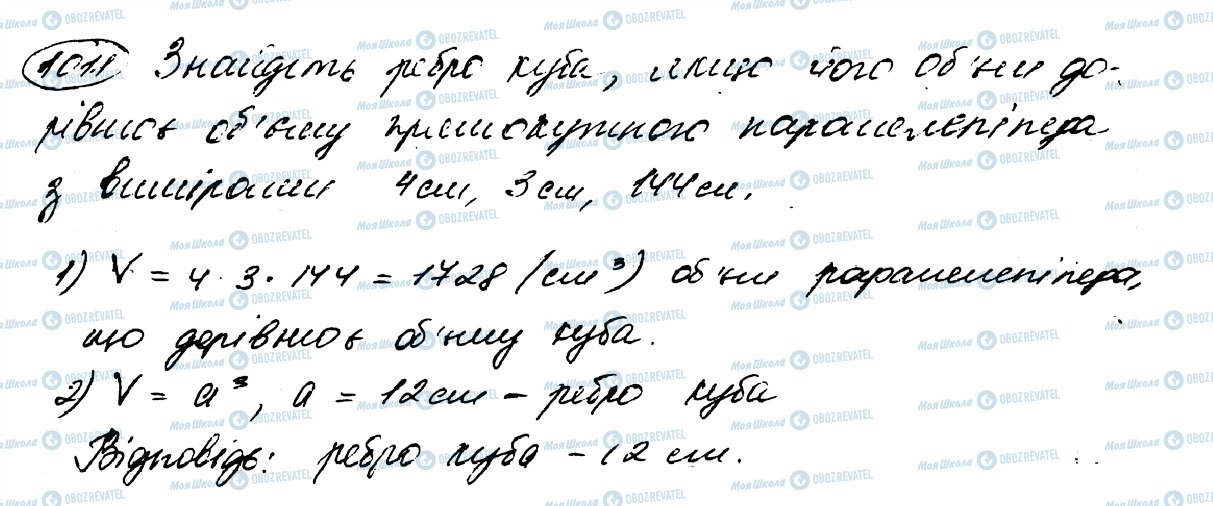 1011 Знайдіть ребро куба, якщо його об'єм до-
рівнює об'єму прямокутного паралелепіпеда
з вимірами 4 см, 3 см, 144 см.
1) V = 4 · 3 · 144 = 1728 (см³) об'єм паралелепіпеда,
що дорівнює об'єму куба.
2) V = a³, a = 12 см – ребро куба
Відповідь: ребро куба – 12 см.